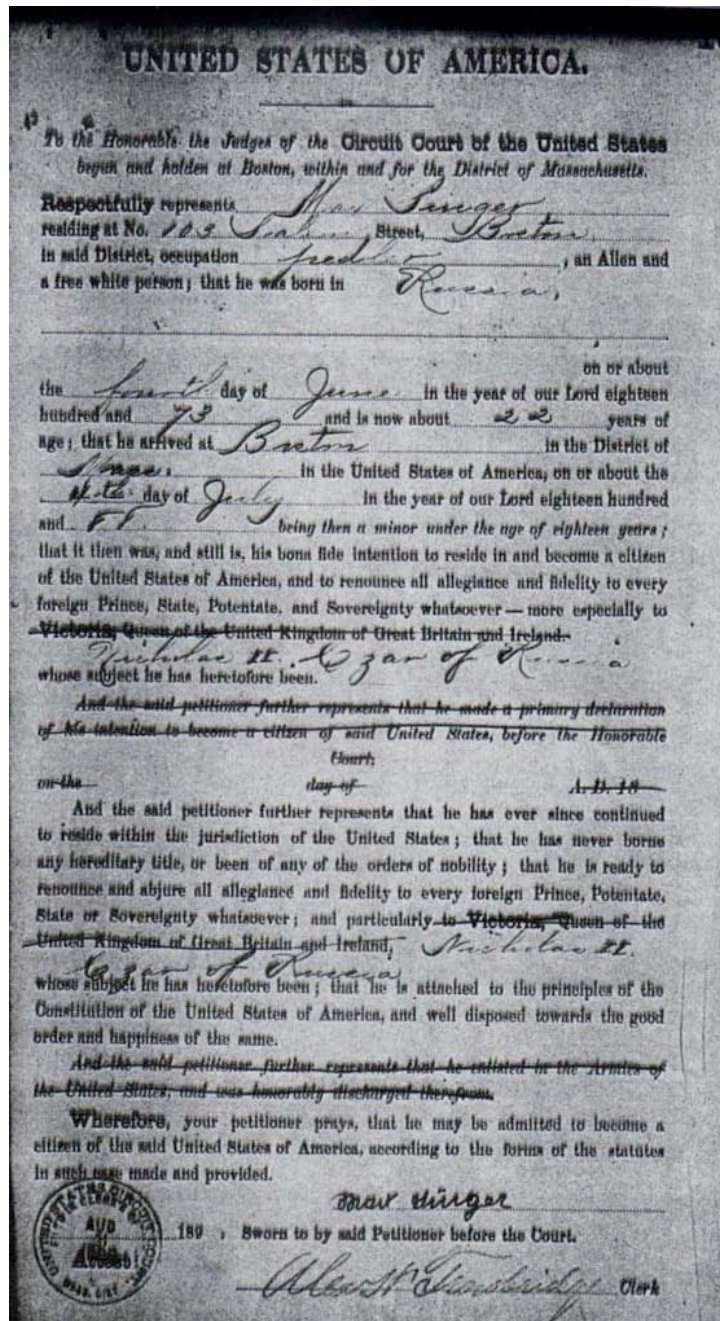 UNITED STATES OF AMERICA.
To the Honorable the Judges of the Circuit Court of the United States
begun and holden at Boston, within and for the District of Massachusetts.
Respectfully represents Max
residing at No. 103 Salem Street, Boston
in said District, occupation pedler, an Alien and
a free white person; that he was born in Russia,
on or about
the fourth day of June in the year of our Lord eighteen
hundred and 73 and is now about 22 years of
age; that he arrived at Boston in the District of
Mass. in the United States of America, on or about the
day of July in the year of our Lord eighteen hundred
and 88. being then a minor under the age of eighteen years;
that it then was, and still is, his bona fide intention to reside in and become a citizen
of the United States of America, and to renounce all allegiance and fidelity to every
foreign Prince, State, Potentate, and Sovereignty whatsoever — more especially to
Victoria, Queen of the United Kingdom of Great Britain and Ireland.
Nicholas II. Czar of Russia
whose subject he has heretofore been.
And the said petitioner further represents that he made a primary declaration
of his intention to become a citizen of said United States, before the Honorable
Court,
on the day of A.D. 18
And the said petitioner further represents that he has ever since continued
to reside within the jurisdiction of the United States; that he has never borne
any hereditary title, or been of any of the orders of nobility; that he is ready to
renounce and abjure all allegiance and fidelity to every foreign Prince, Potentate,
State or Sovereignty whatsoever; and particularly to Victoria, Queen of the
United Kingdom of Great Britain and Ireland, Nicholas II.
Czar of Russia
whose subject he has heretofore been; that he is attached to the principles of the
Constitution of the United States of America, and well disposed towards the good
order and happiness of the same.
And the said petitioner further represents that he enlisted in the Armies of
the United States, and was honorably discharged therefrom.
Wherefore, your petitioner prays, that he may be admitted to become a
citizen of the said United States of America, according to the forms of the statutes
in such case made and provided.
Max
189 : Sworn to by said Petitioner before the Court.
Attest:
Alex H. Trowbridge Clerk